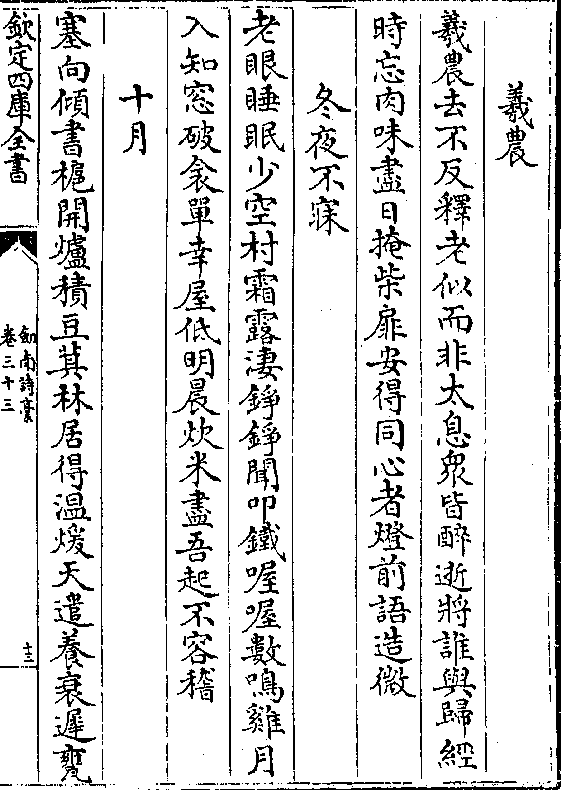 羲農
羲農去不反釋老似而非太息衆皆醉逝將誰與歸經
時忘肉味盡日掩柴扉安得同心者燈前語造微
冬夜不寐
老眼睡眠少空村霜露凄錚錚聞叩鐵喔喔數鳴雞月
入知窓破衾單幸屋低明晨炊米盡吾起不容稽
十月
塞向傾書槴開爐積豆萁林居得温煖天遣養衰遲甕
欽定四庫全書
劍南詩藁
卷三十三
十三